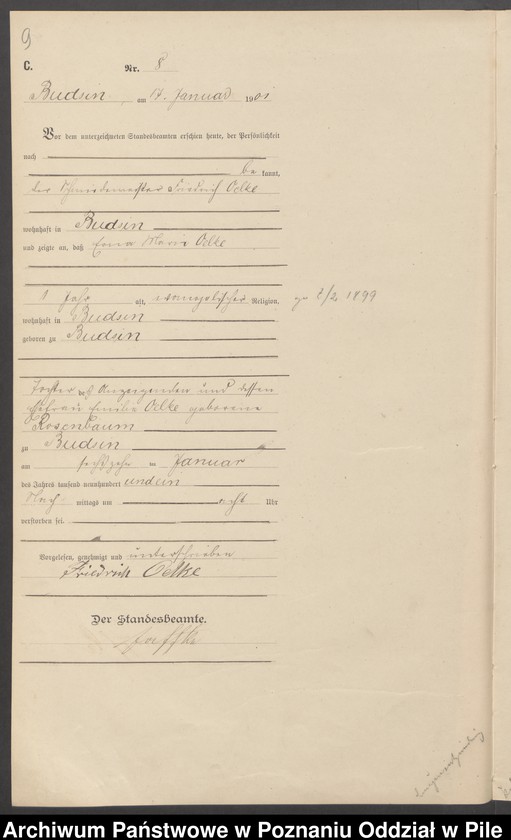 9
C.
Nr. 8
Budsin, am 17. Januar 1901
Vor dem unterzeichneten Standesbeamten erschien heute, der Persönlichkeit
nach
be kannt,
der Schmiedemeister Friedrich Oelke
wohnhaft in Budsin
und zeigte an, daß Erna Marie Oelke
1 Jahr alt, evangelischer Religion, 1899
wohnhaft in Budsin
geboren zu Budsin
Tochter des Anzeigenden und dessen
Ehefrau Emilie Oelke geborene
Rosenbaum
zu Budsin
am sechszehn ten Januar
des Jahres tausend neunhundert und ein
Nach mittags um acht Uhr
verstorben sei.
Vorgelesen, genehmigt und unterschrieben
Friedrich Oelke
Der Standesbeamte.
Archiwum Państwowe w Poznaniu Oddział w Pile